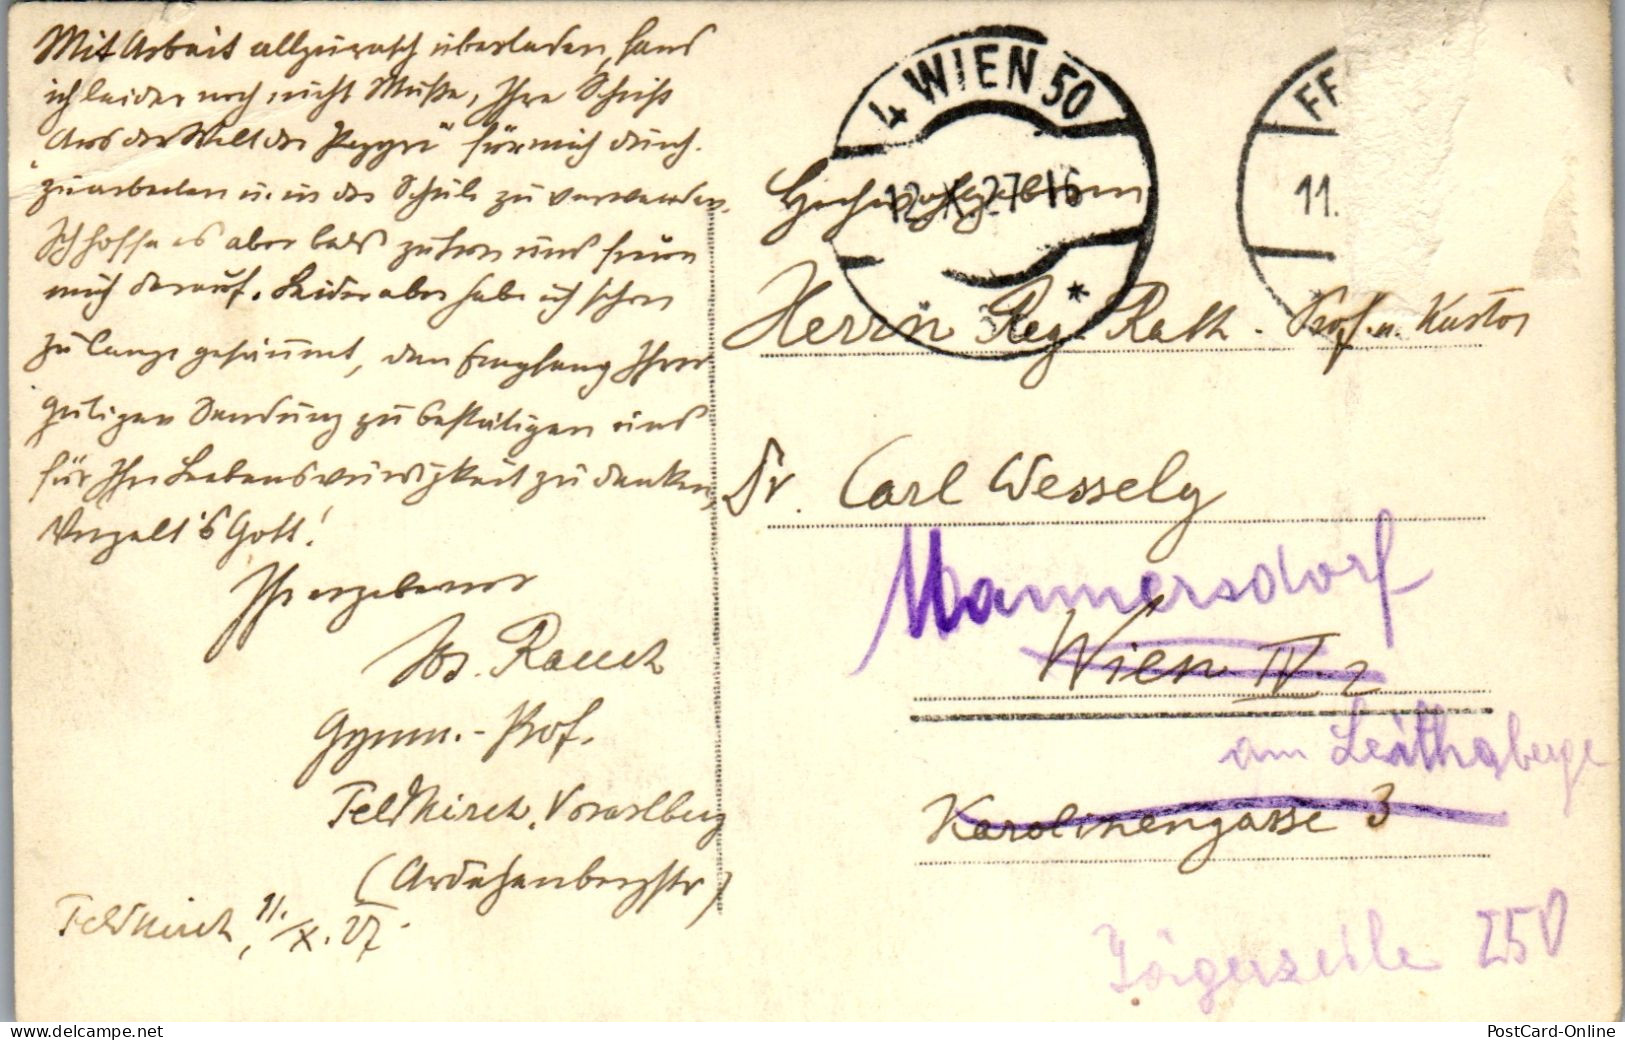 Mit Arbeit allzurasch überladen, fand
ich leider noch nicht Muße, Ihre Schrift
„Aus der Welt der Papyri“ für mich durch-
zuarbeiten u. in der Schule zu verwenden.
Ich hoffe es aber bald zu tun und freue
mich darauf. Leider aber habe ich schon
zu lange gesäumt, den Empfang Ihrer
gütigen Sendung zu bestätigen und
für Ihre Liebenswürdigkeit zu danken,
Vergelt's Gott!
Ihr ergebener
Jos. Rauch
Gymn.-Prof.
Feldkirch, Vorarlberg
(Ardetzenbergstr)
Feldkirch, 11./X. 27.
4 WIEN 50
12. X. 27 16
FE
11.
Hochwohlgeboren
Herrn Reg. Rath. Prof. u. Kustos
Dr. Carl Wessely
Mannersdorf
Wien IV. 2
am Leithagberge
Karolinengasse 3
Jägerzeile 250
PostCard-Online
delcampe.net